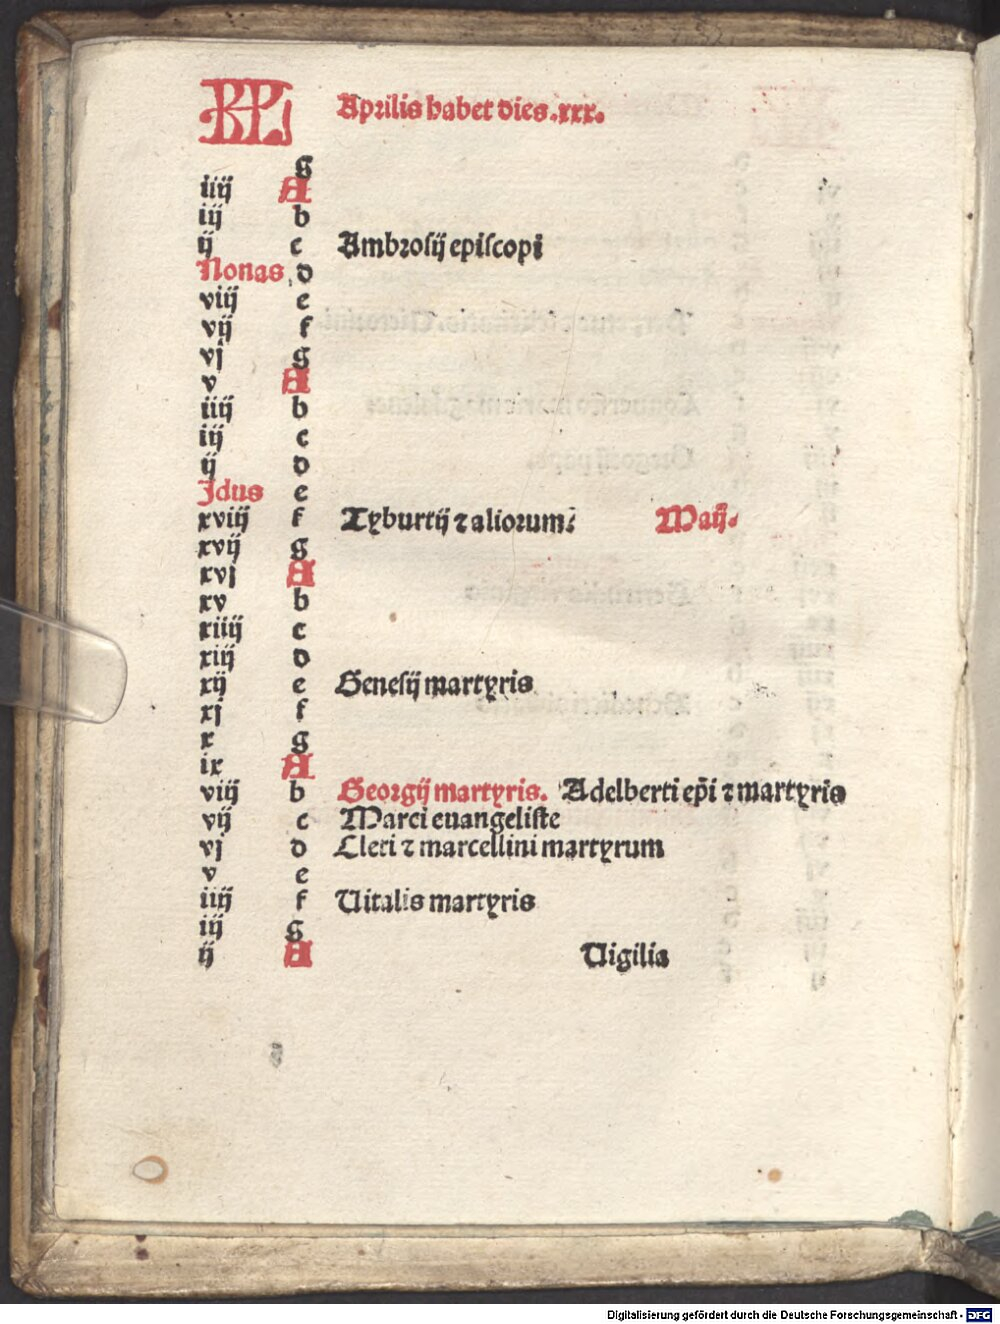 KL Aprilis habet dies.xxx.
g
iiij A
iij b
ij c Ambrosij episcopi
Nonas d
viij e
vij f
vj g
v A
iiij b
iij c
ij d
Jdus e
xviij f Tyburtij ⁊ aliorum: Maij.
xvij g
xvj A
xv b
xiiij c
xiij d
xij e Genesij martyris
xj f
x g
ix A
viij b Georgij martyris. Adelberti ep̄i ⁊ martyris
vij c Marci euangeliste
vj d Cleti ⁊ marcellini martyrum
v e
iiij f Uitalis martyris
iij g
ij A Uigilia
Digitalisierung gefördert durch die Deutsche Forschungsgemeinschaft - DFG